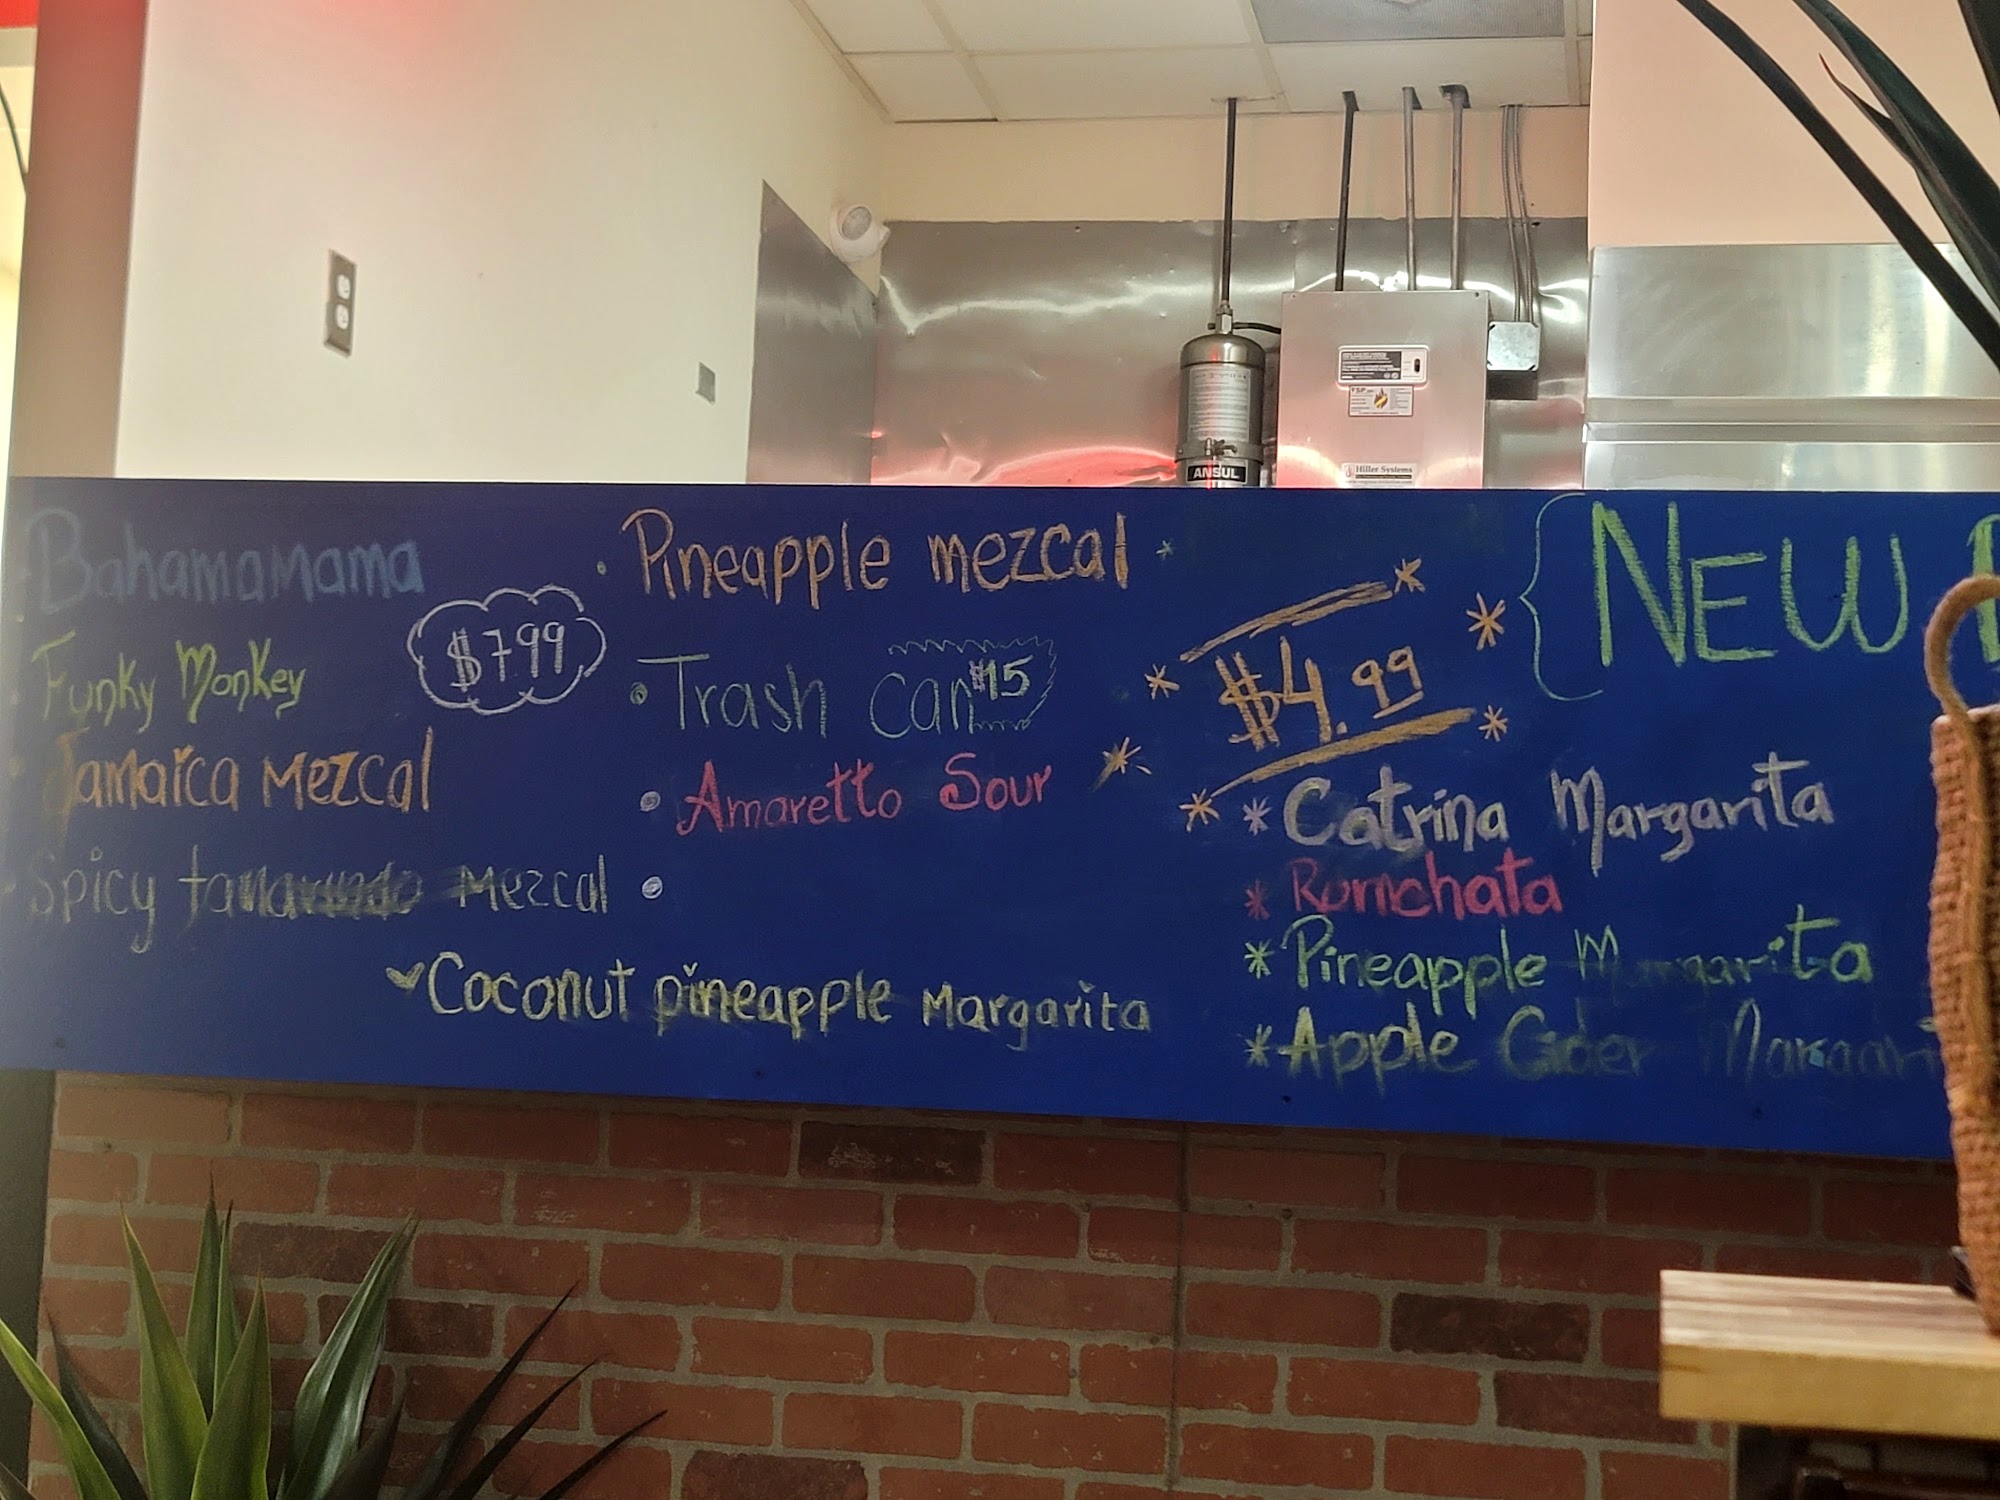 ANSUL
Hiller Systems
Bahamamama
$7.99
Funky Monkey
Jamaica Mezcal
Spicy tamarindo Mezcal
Pineapple mezcal
Trash can $15
Amaretto Sour
Coconut pineapple Margarita
$4.99
NEW
Catrina Margarita
Rumchata
Pineapple Margarita
Apple Cider Margari